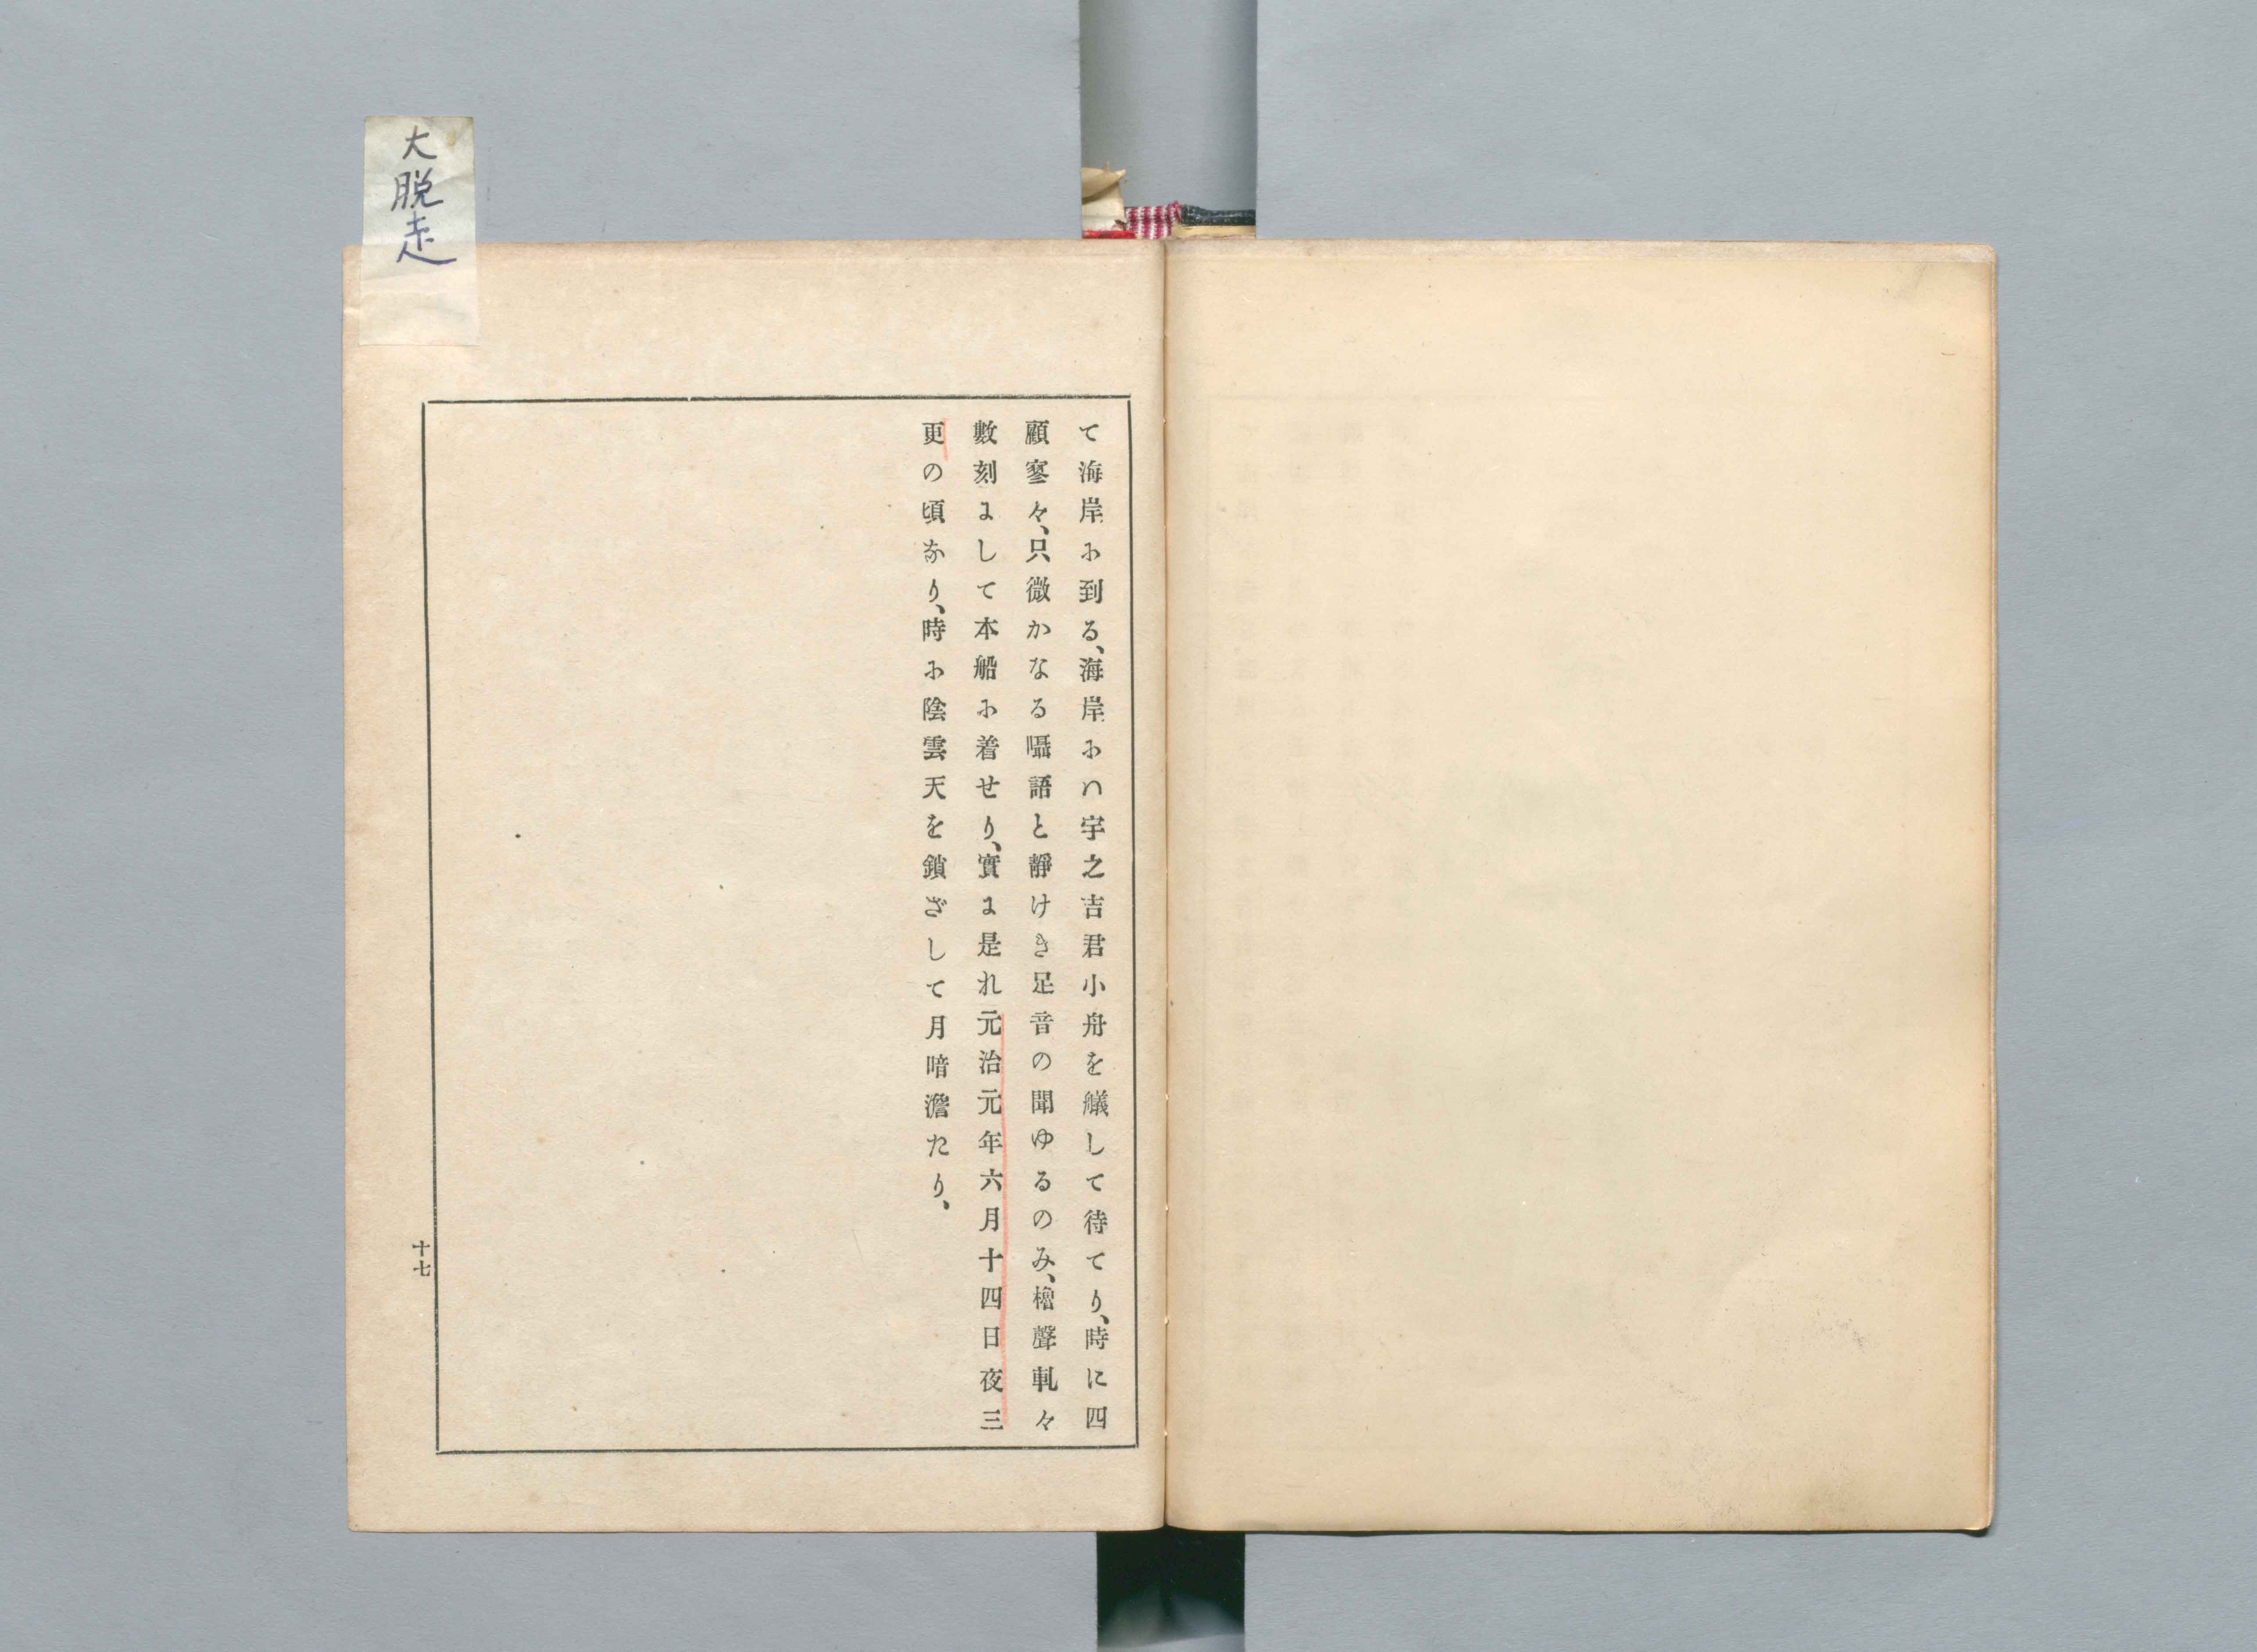 大脱走
て海岸に到る、海岸にハ宇之吉君小舟を艤して待てり、時に四
顧寥々、只微かなる囁語と靜けき足音の聞ゆるのみ、櫓聲軋々
數刻にして本船に着せり、實に是れ元治元年六月十四日夜三
更の頃なり、時に陰雲天を鎖ざして月暗澹たり、
十七